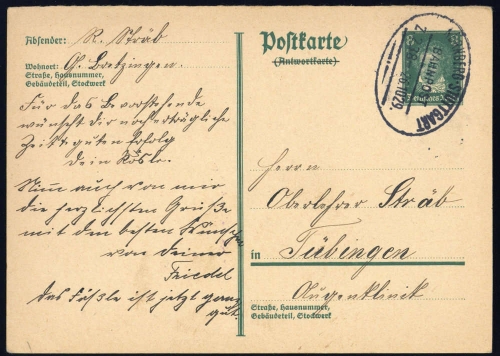 Absender: R. Sträb
Wohnort: O. Baltzingen.
Straße, Hausnummer,
Gebäudeteil, Stockwerk
Für das Bevorstehende
wünscht dir nachträgliche
guten Erfolg
dein Rösle.
Nimm auch von mir
die herzlichsten Grüße
mit den besten Wünschen
von deiner
Friedel
das Fäßle ist jetzt ganz
gut.
Postkarte
(Antwortkarte)
STUTTGART
BAHNPOST
Herrn
Oberlehrer Sträb
in Tübingen
Augenklinik
Straße, Hausnummer,
Gebäudeteil, Stockwerk